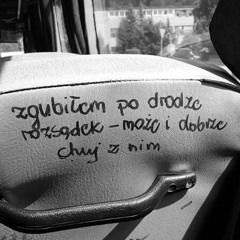 zgubiłem po drodze
rozsądek – może i dobrze
chuj z nim